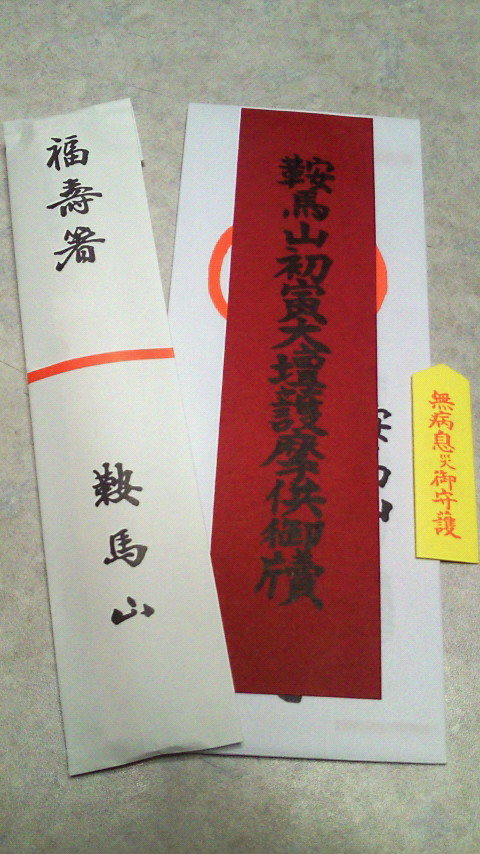 福壽箸
鞍馬山
鞍馬山初寅大壇護摩供御牘
無病息災御守護